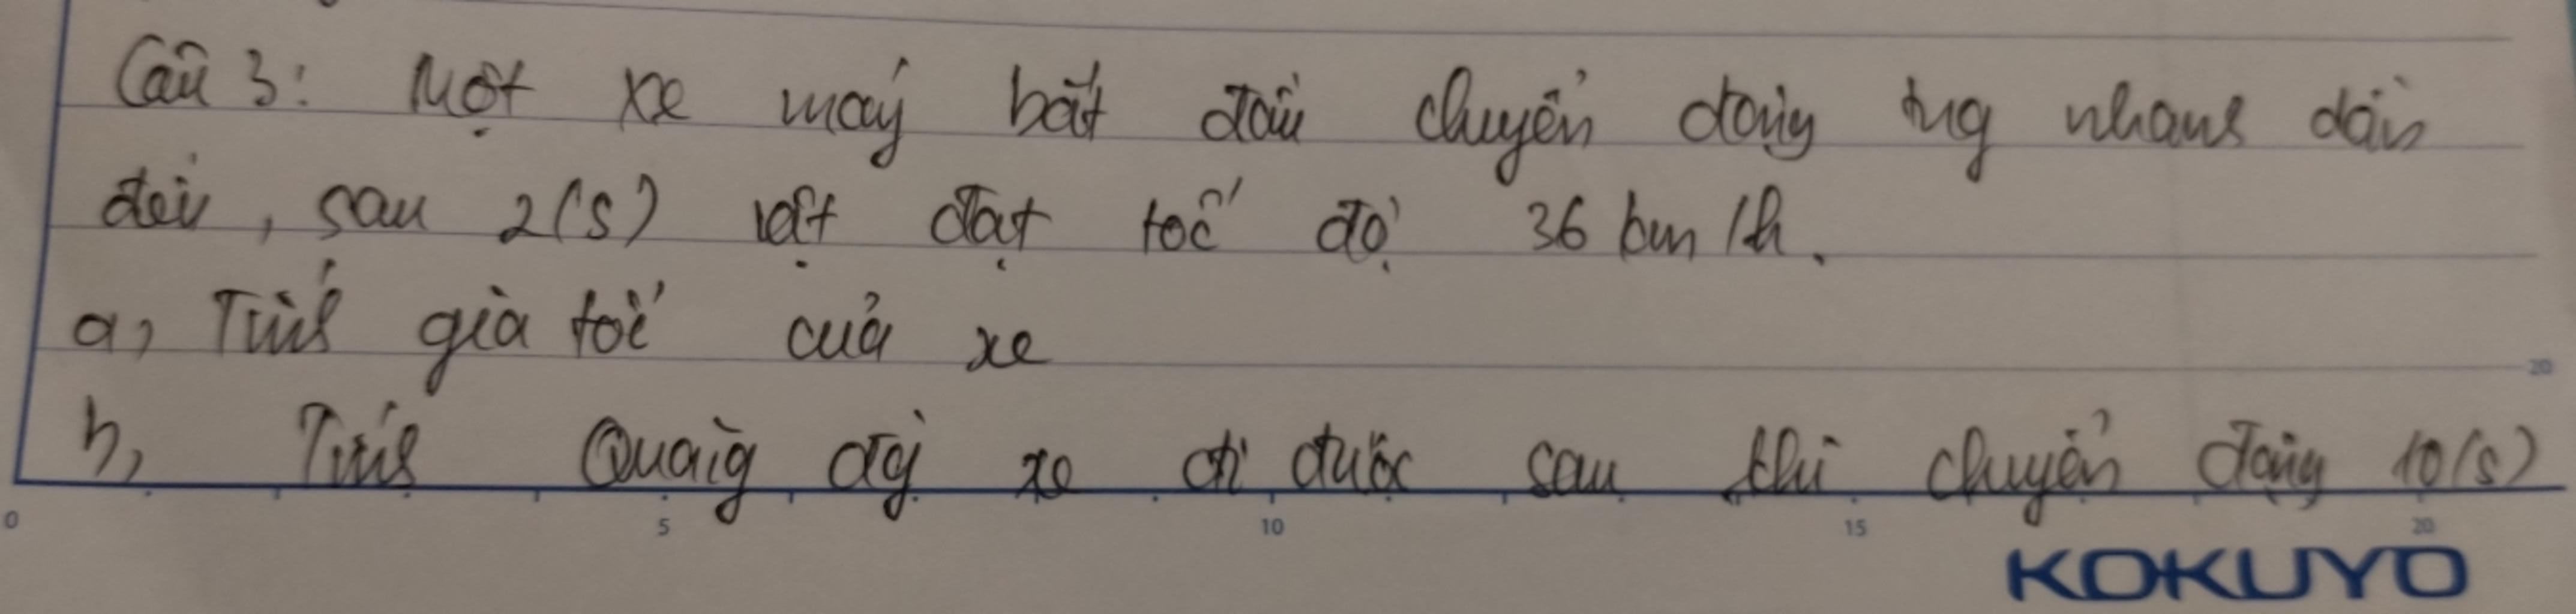 Câu 3: Một xe máy bắt đầu chuyển động thg nhanh dần
đều, sau 2(s) vật đạt tốc độ 36 km/h.
a, Tính gia tốc của xe
b, Tính Quãng đg xe đi được sau khi chuyển động 10(s)
0 5 10 15 20
20
KOKUYO